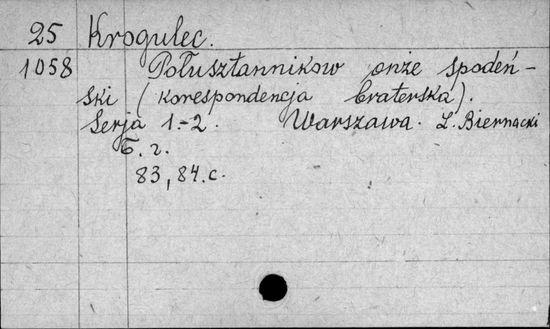 25 Krogulec.
1058 Połusztannikow onże spodeń-
ski (korespondencja braterska).
Serja 1.-2. Warszawa. L. Biernacki
Б. г.
83, 84.с.